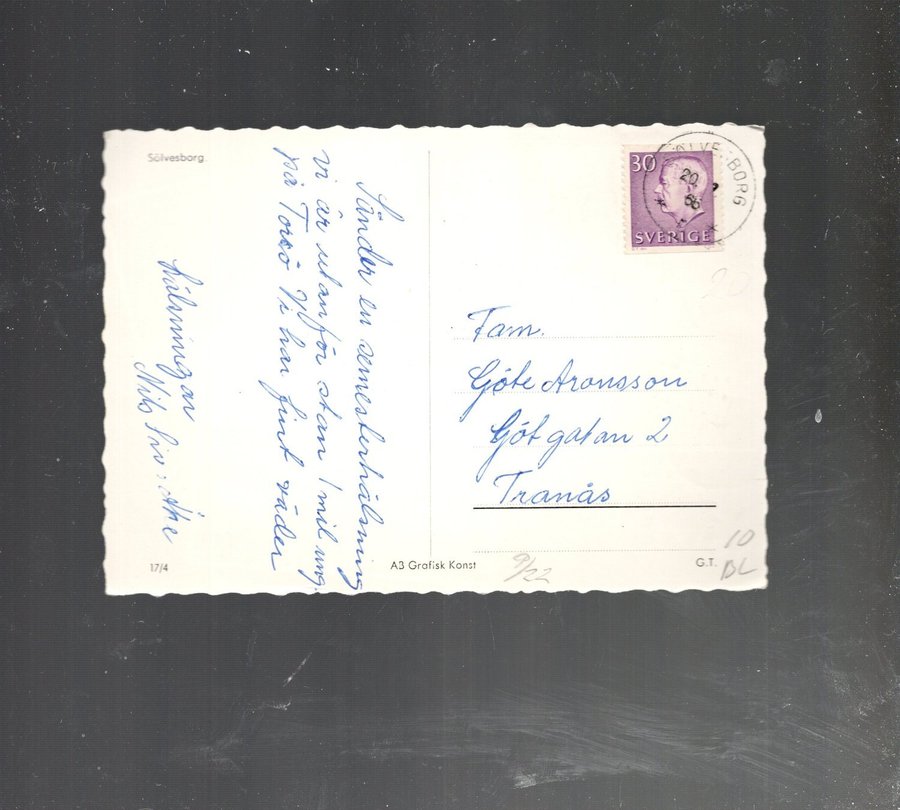 Sölvesborg
Sänder en semesterhälsning
Vi är utanför stan 1 mil ung.
på Torsö Vi har fint väder
Hälsningar
Nils Åke
30
SVERIGE
SÖLVESBORG
20. 7
66
Fam.
Göte Aronsson
Götgatan 2
Tranås
17/4
AB Grafisk Konst
9/22
G.T.
10
BL